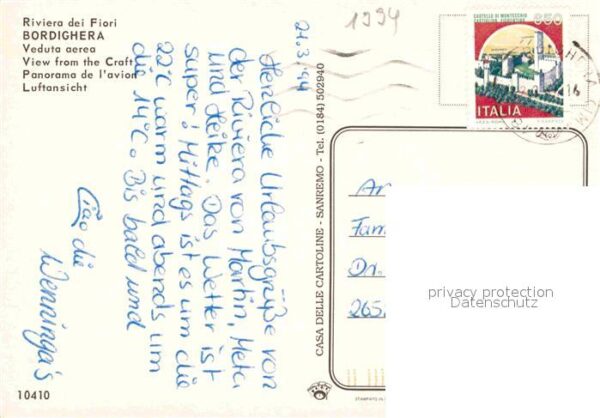 Riviera dei Fiori
BORDIGHERA
Veduta aerea
View from the Craft
Panorama de l'avion
Luftansicht
1994
24.3.94
Herzliche Urlaubsgrüße von
der Riviera von Martin, Meta
und Heike. Das Wetter ist
super! Mittags ist es um die
22°C warm und abends um
die 14°C. Bis bald und
Ciao die
Wenninga's
10410
CASA DELLE CARTOLINE - SANREMO - Tel. (0184) 502940
CASTELLO DI MONTECCHIO
850
ITALIA
16
An
Fam
Dr.
265
privacy protection
Datenschutz